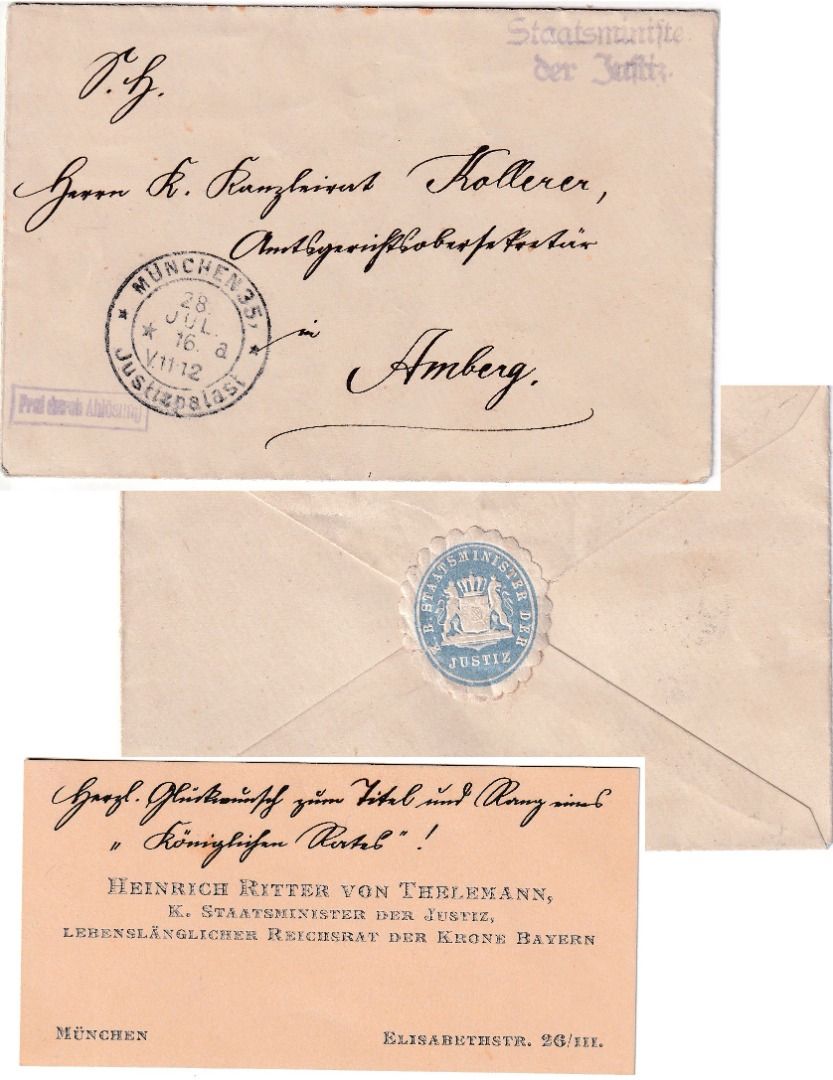 Staatsministe
der Justiz.
S. H.
Herrn K. Kanzleirat Kollerer,
Amtsgerichtsobersekretär
in
Amberg.
MÜNCHEN 35,
28.
JUL.
16. a
V.11-12
Justizpalast
Frei durch Ablösung
K. B. STAATSMINISTER DER
JUSTIZ
Herzl. Glückwunsch zum Titel und Rang eines
„Königlichen Rates"!
HEINRICH RITTER VON THELEMANN,
K. STAATSMINISTER DER JUSTIZ,
LEBENSLÄNGLICHER REICHSRAT DER KRONE BAYERN
MÜNCHEN
ELISABETHSTR. 26/III.